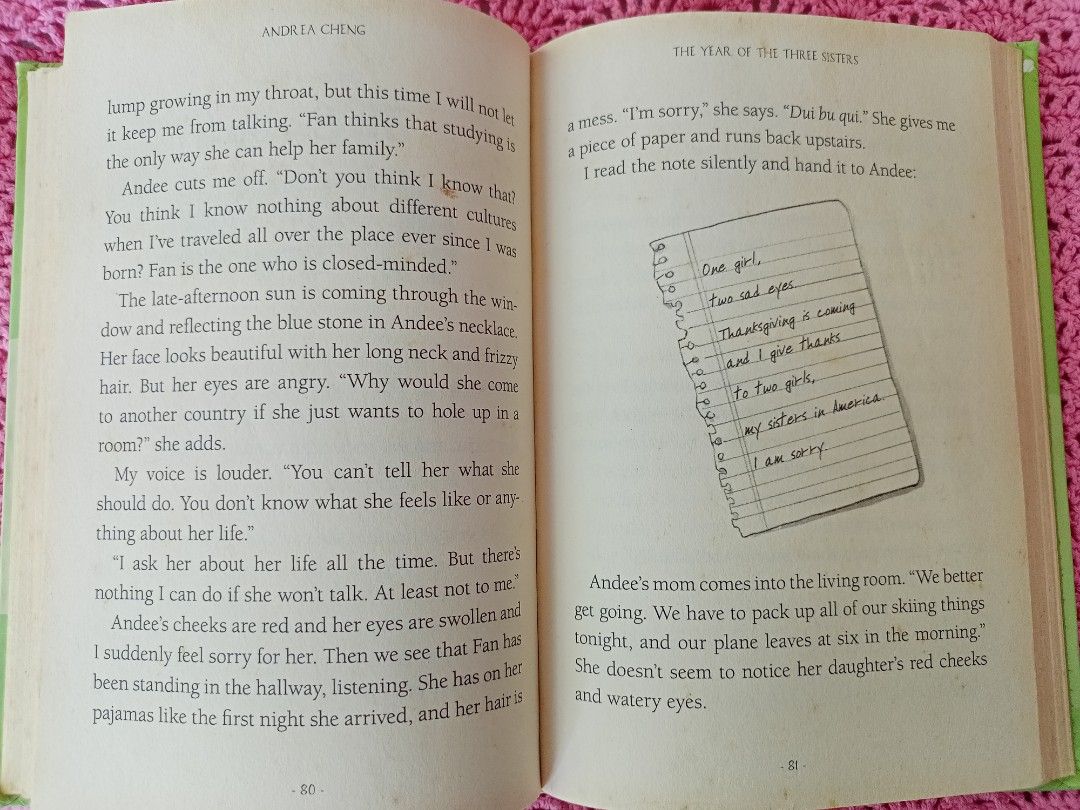 ANDREA CHENG
lump growing in my throat, but this time I will not let
it keep me from talking. “Fan thinks that studying is
the only way she can help her family.”
Andee cuts me off. “Don’t you think I know that?
You think I know nothing about different cultures
when I’ve traveled all over the place ever since I was
born? Fan is the one who is closed-minded.”
The late-afternoon sun is coming through the win-
dow and reflecting the blue stone in Andee’s necklace.
Her face looks beautiful with her long neck and frizzy
hair. But her eyes are angry. “Why would she come
to another country if she just wants to hole up in a
room?” she adds.
My voice is louder. “You can’t tell her what she
should do. You don’t know what she feels like or any-
thing about her life.”
“I ask her about her life all the time. But there’s
nothing I can do if she won’t talk. At least not to me.”
Andee’s cheeks are red and her eyes are swollen and
I suddenly feel sorry for her. Then we see that Fan has
been standing in the hallway, listening. She has on her
pajamas like the first night she arrived, and her hair is
- 80 -
THE YEAR OF THE THREE SISTERS
a mess. “I’m sorry,” she says. “Dui bu qui.” She gives me
a piece of paper and runs back upstairs.
I read the note silently and hand it to Andee:
One girl,
two sad eyes.
Thanksgiving is coming
and I give thanks
to two girls,
my sisters in America.
I am sorry.
Andee’s mom comes into the living room. “We better
get going. We have to pack up all of our skiing things
tonight, and our plane leaves at six in the morning.”
She doesn’t seem to notice her daughter’s red cheeks
and watery eyes.
- 81 -